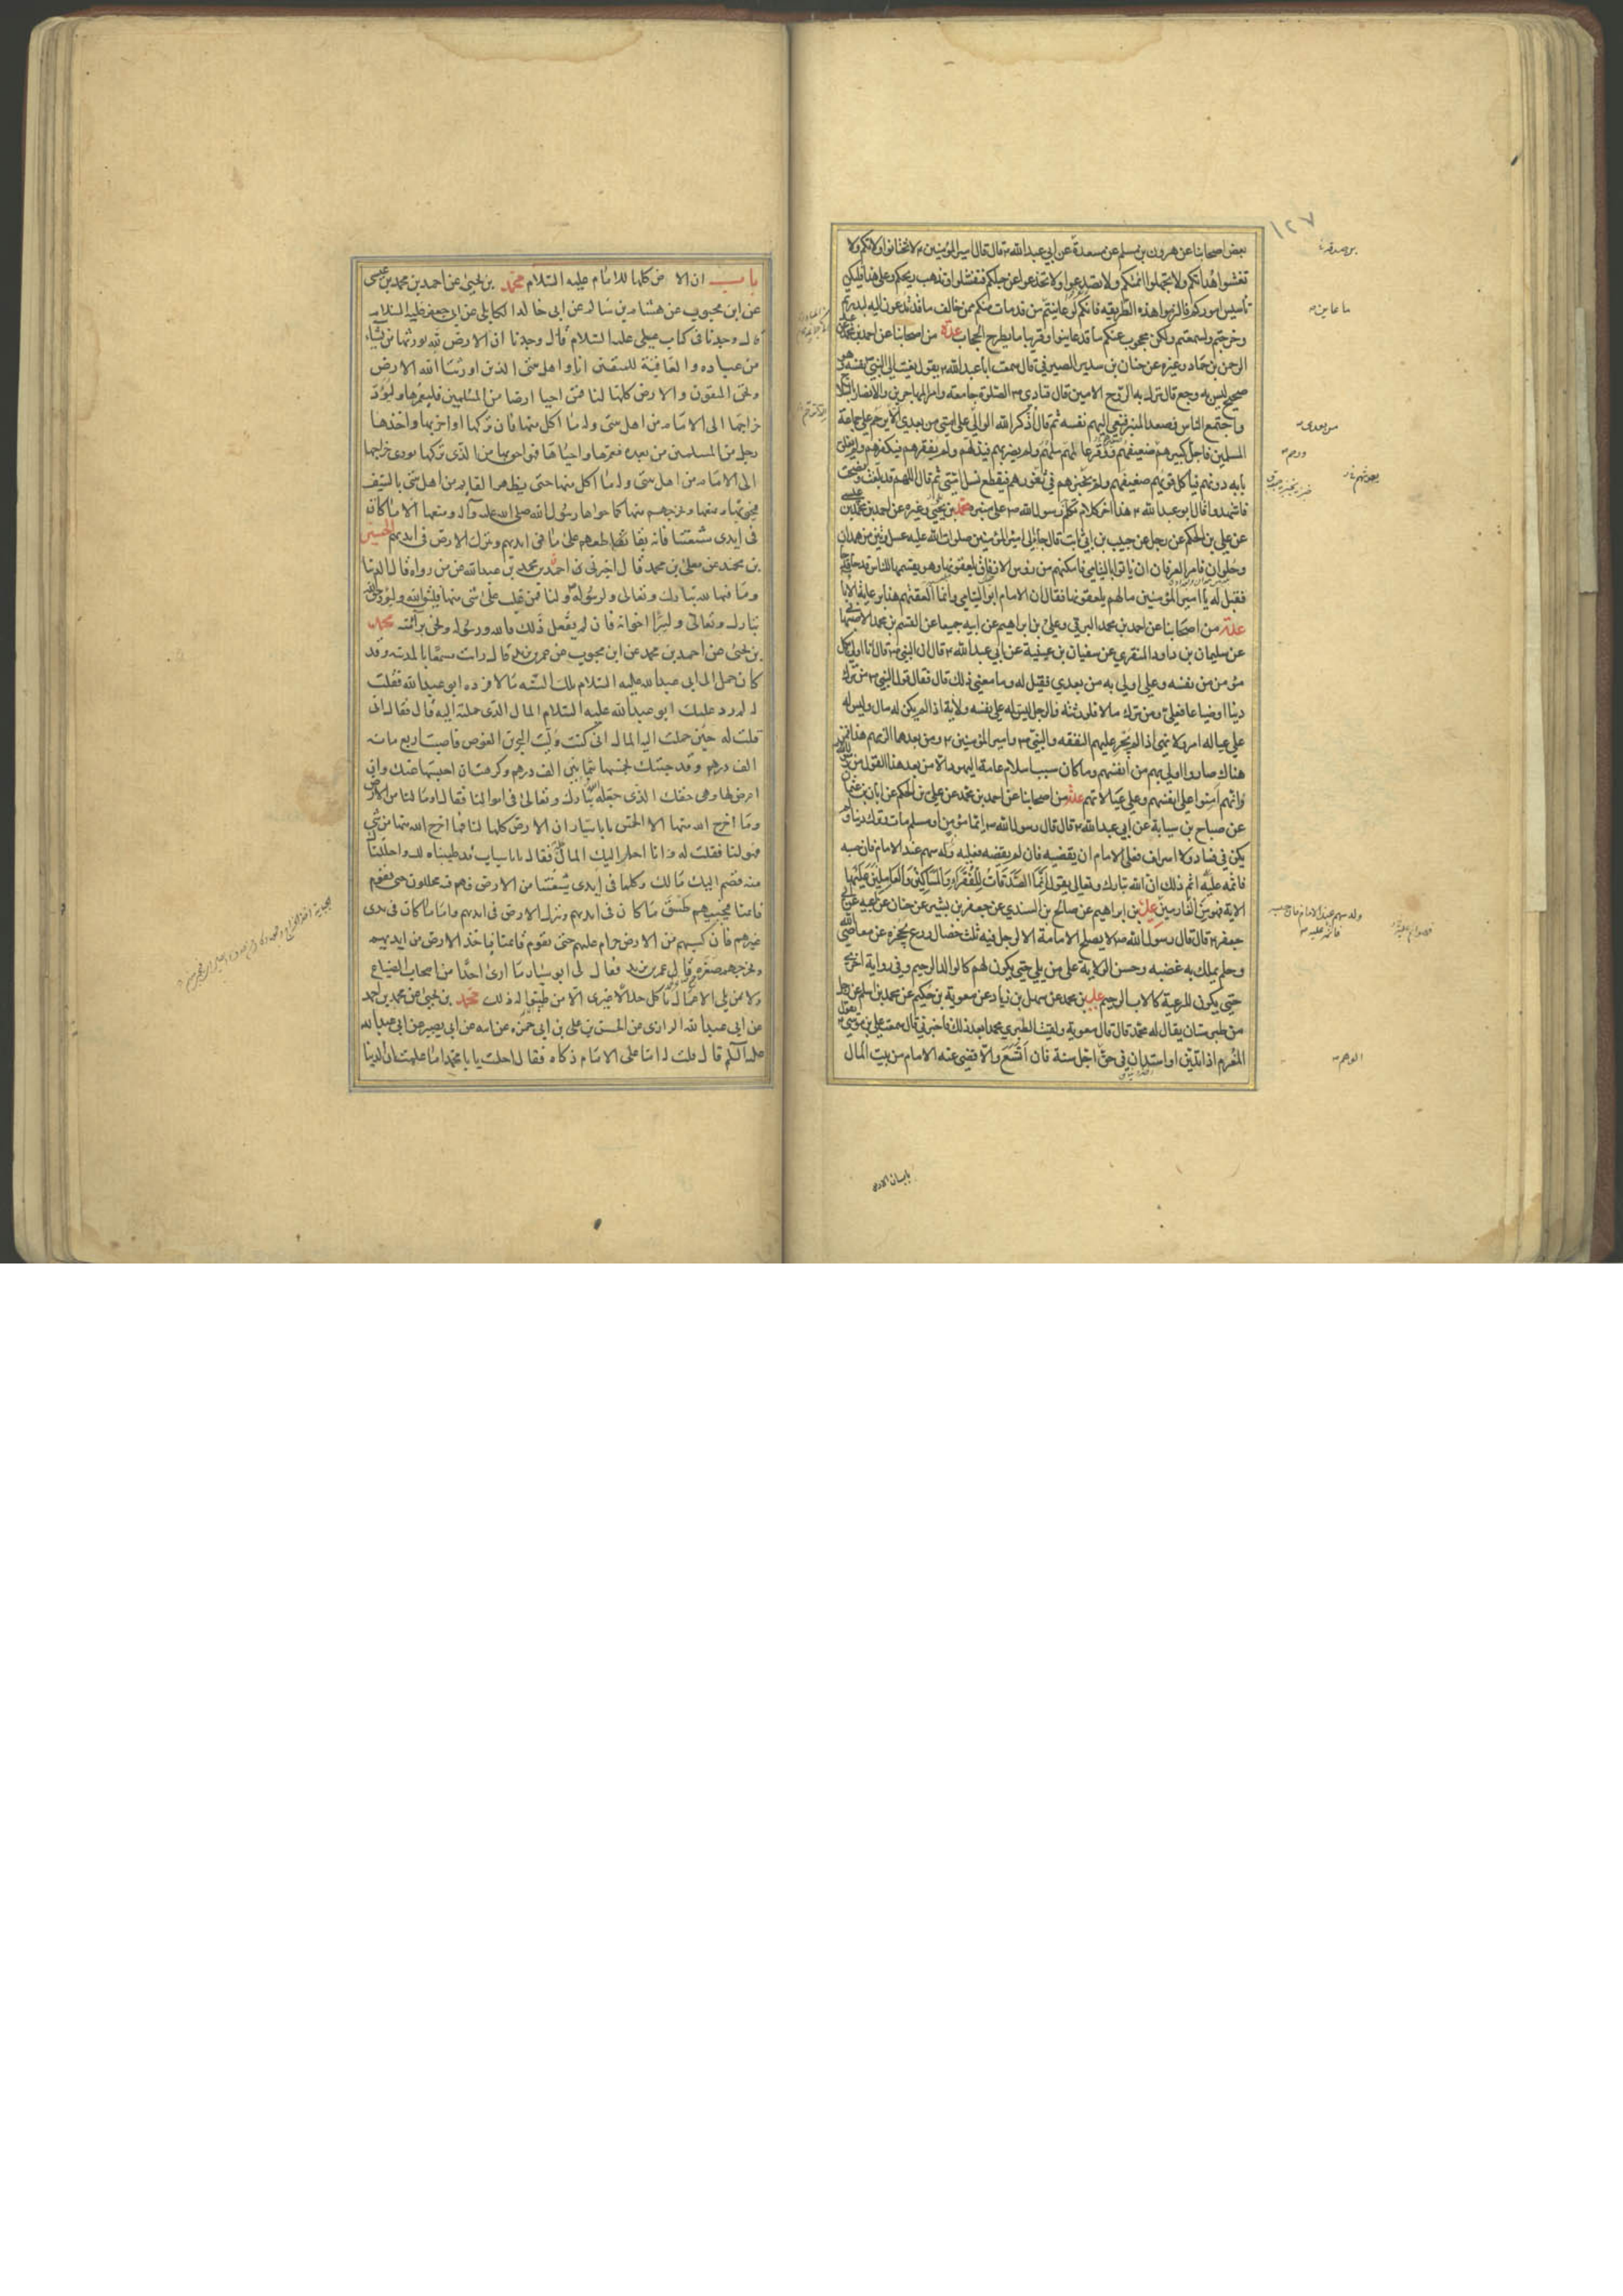 ١٢٧
بعض اصحابنا عن هرون بن مسلم عن مسعدة عن ابي عبدالله ع قال قال امير المؤمنين ع لا تختانوا ولاتكم ولا
تغشوا هداتكم ولا تجهلوا ائمتكم ولا تصدعوا عن حبلكم فتفشلوا وتذهب ريحكم وعلى هذا فليكن
تأسيس اموركم والزموا هذه الطريقه فانكم لو عاينتم من قد مات منكم ممن خالف ما قد تدعون اليه لبدرتم
وخرجتم ولسمعتم ولكن محجوب عنكم ما قد عاينوا وقريبا ما يطرح الحجاب عدة من اصحابنا عن احمد بن محمد عن عبد
الرحمن بن حماد وغيره عن حنان بن سدير الصيرفي قال سمعت ابا عبدالله ع يقول نعيت الى النبي ص نفسه وهو
صحيح ليس به وجع قال نزل به الروح الامين قال فنادى ص الصلوة جامعة وامر المهاجرين والانصار بالسلاح
واجتمع الناس فصعد المنبر فنعى اليهم نفسه ثم قال اذكر الله الوالي على امتي من بعدي الا يرحم على جماعة
المسلمين فاجل كبيرهم ورحم ضعيفهم ووقر عالمهم ولم يضر بهم فيذلهم ولم يفقرهم فيكفرهم ولم يغلق
بابه دونهم فياكل قويهم ضعيفهم ولم يخبزهم في بعوثهم فيقطع نسل امتي ثم قال اللهم قد بلغت ونصحت
فاشهدوا قال ابو عبدالله ع هذا اخر كلام تكلم به رسول الله ص على منبره محمد بن يحيى وغيره عن احمد بن محمد بن عيسى
عن علي بن الحكم عن رجل عن حبيب بن ابي ثابت قال جاء الى امير المؤمنين صلوات الله عليه عسل وتين من همدان
وحلوان فامر العرفان ان ياتوا باليتامى فامكنهم من رؤس الازقاق يلعقونها وهو يقسمها للناس قدحا قدحا
فقيل له يا امير المؤمنين ما لهم يلعقونها فقال ان الامام ابو اليتامى وانما العقتهم هذا برعاية الاباء
عدة من اصحابنا عن احمد بن محمد البرقي وعلي بن ابراهيم عن ابيه جميعا عن القسم بن محمد الاصبهاني
عن سليمان بن داود المنقري عن سفيان بن عيينة عن ابي عبدالله ع قال ان النبي ص قال انا اولى بكل
مؤمن من نفسه وعلي اولى به من بعدي فقيل له وما معنى ذلك قال فقال قول النبي ص من ترك
دينا او ضياعا فعلي ومن ترك مالا فلورثته فالرجل ليس له على نفسه ولاية اذا لم يكن له مال وليس له
على عياله امر ولا نهي اذا لم يجر عليهم النفقه والنبي ص وامير المؤمنين ع ومن بعدها الزمهم هذا فمن
هناك صاروا اولى بهم من انفسهم وما كان سبب اسلام عامة اليهود الا من بعد هذا القول من رسول الله
وانهم امنوا على انفسهم وعلى عيالاتهم عدة من اصحابنا عن احمد بن محمد عن علي بن الحكم عن ابان بن عثمان
عن صباح بن سيابة عن ابي عبدالله ع قال قال رسول الله ص ايما مؤمن او مسلم مات وترك دينا لم
يكن في فساد ولا اسراف فعلى الامام ان يقضيه فان لم يقضه فعليه وله سهم عند الامام فان حبسه
فاثمه عليه اثم ذلك ان الله تبارك وتعالى يقول انما الصدقات للفقراء والمساكين والعاملين عليها
الاية فهو من الغارمين علي بن ابراهيم عن صالح بن السندي عن جعفر بن بشير عن حنان عن ابيه عن ابي
جعفر ع قال قال رسول الله ص لا يصلح الامامة الا لرجل فيه ثلث خصال ورع يحجزه عن معاصي الله
وحلم يملك به غضبه وحسن الولاية على من يلي حتى يكون لهم كالوالد الرحيم وفي رواية اخرى
حتى يكون للرعية كالاب الرحيم علي بن محمد عن سهل بن زياد عن معوية بن حكيم عن محمد بن اسلم عن رجل
من طبرستان يقال له محمد قال قال معوية ولقيت الطبري محمدا بعد ذلك فاخبرني قال سمعت علي بن موسى ع يقول
المغرم اذا تدين او استدان في حق اجل سنة فان اتسع والا قضى عنه الامام من بيت المال
باب ان الارض
باب ان الارض كلها للامام عليه السلام محمد بن يحيى عن احمد بن محمد بن عيسى
عن ابن محبوب عن هشام بن سالم عن ابي خالد الكابلي عن ابي جعفر عليه السلام
قال وجدنا في كتاب علي عليه السلام قال وجدنا ان الارض لله يورثها من يشاء
من عباده والعاقبة للمتقين انا واهل بيتي الذين اورثنا الله الارض
ونحن المتقون والارض كلها لنا فمن احيا ارضا من المسلمين فليعمرها وليؤد
خراجها الى الامام من اهل بيتي وله ما اكل منها فان تركها او اخربها واخذها
رجل من المسلمين من بعده فعمرها واحياها فهو احق بها من الذي تركها يؤدي خراجها
الى الامام من اهل بيتي وله ما اكل منها حتى يظهر القايم من اهل بيتي بالسيف
فيحويها ويمنعها ويخرجهم منها كما حواها رسول الله صلى الله عليه وآله ومنعها الا ما كان
في ايدي شيعتنا فانه يقاطعهم على ما في ايديهم ويترك الارض في ايديهم الحسين
بن محمد عن معلى بن محمد قال اخبرني احمد بن محمد بن عبدالله عن من رواه قال الدنيا
وما فيها لله تبارك وتعالى ولرسوله ولنا فمن غلب على شئ منها فليتق الله وليؤد حق الله
تبارك وتعالى وليبر اخوانه فان لم يفعل ذلك فالله ورسوله ونحن برآء منه محمد
بن يحيى عن احمد بن محمد عن ابن محبوب عن عمر بن يزيد قال رايت مسمعا بالمدينة وقد
كان حمل الى ابي عبدالله عليه السلام تلك السنة مالا فرده ابو عبدالله فقلت
له لم رد عليك ابو عبدالله عليه السلام المال الذي حملته اليه قال فقال اني
قلت له حين حملت اليه المال اني كنت وليت البحرين الغوص فاصبت اربع مائة
الف درهم وقد جئتك بخمسها بثمانين الف درهم وكرهت ان احبسها عنك وان
اعرض لها وهي حقك الذي جعله الله تبارك وتعالى في اموالنا فقال او ما لنا من الارض
وما اخرج الله منها الا الخمس يا با سيار ان الارض كلها لنا فما اخرج الله منها من شئ
فهو لنا فقلت له وانا احمل اليك المال كله فقال يا با سيار قد طيبناه لك واحللناك
منه فضم اليك مالك وكلما في ايدي شيعتنا من الارض فهم فيه محللون حتى يقوم
قائمنا فيجبيهم طسق ما كان في ايديهم ويترك الارض في ايديهم واما ما كان في يدي
غيرهم فان كسبهم من الارض حرام عليهم حتى يقوم قائمنا فياخذ الارض من ايديهم
ويخرجهم صغرة قال عمر بن يزيد فقال لي ابو سيار ما ارى احدا من اصحاب الضياع
ولا ممن يلي الاعمال ياكل حلالا غيري الا من طيبوا له ذلك محمد بن يحيى عن محمد بن احمد
عن ابي عبدالله الرازي عن الحسن بن علي بن ابي حمزه عن ابيه عن ابي بصير عن ابي عبدالله
عليه السلم قال قلت له اما على الامام زكاه فقال احلت يا با محمد اما علمت ان الدنيا